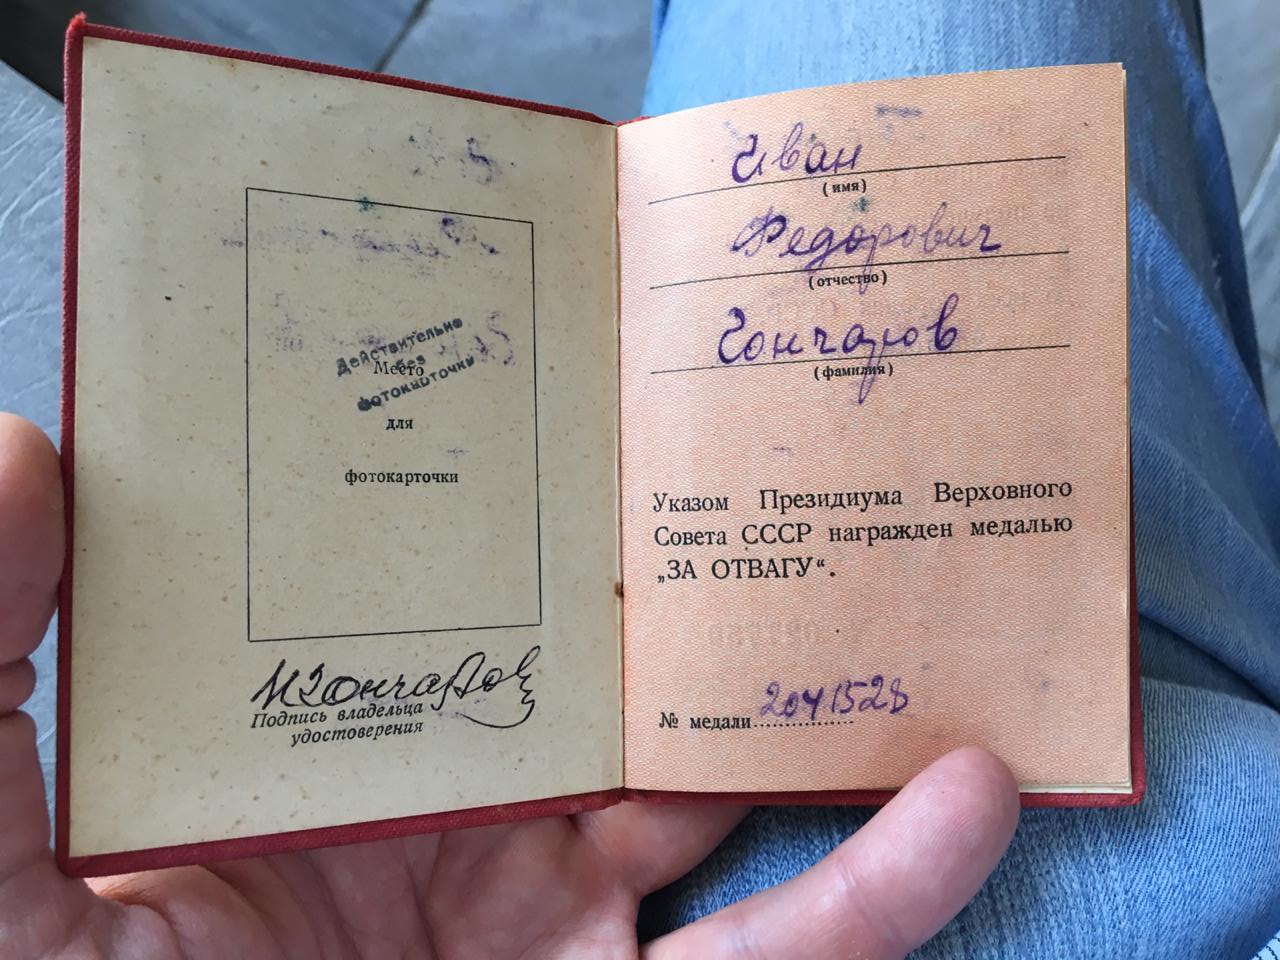 Действительно
без
фотокарточки
Место
для
фотокарточки
И Гончаров
Подпись владельца
удостоверения
Иван
(имя)
Федорович
(отчество)
Гончаров
(фамилия)
Указом Президиума Верховного
Совета СССР награжден медалью
„ЗА ОТВАГУ“.
№ медали 2041528